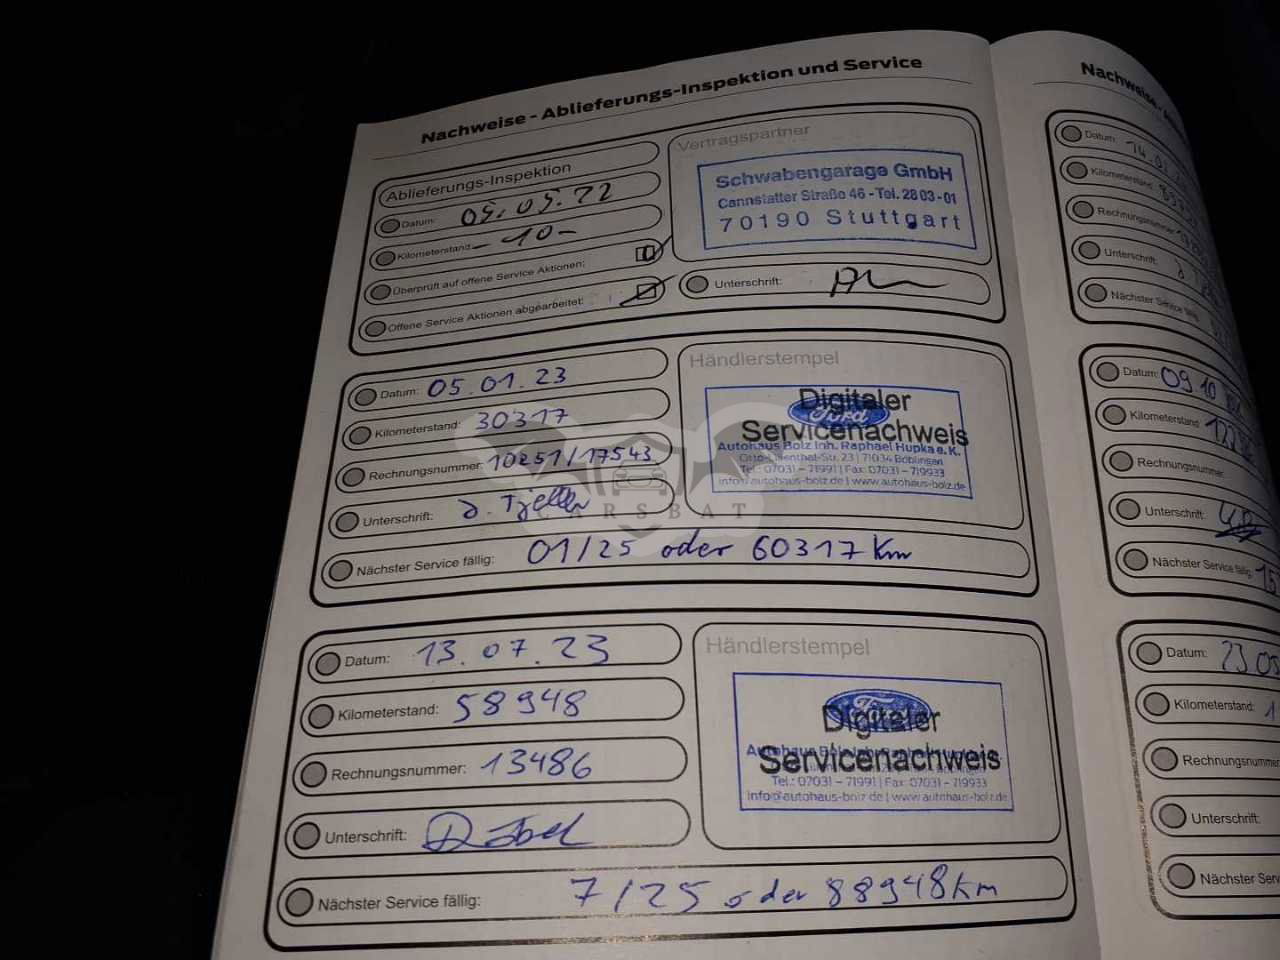 Nachweise - Ablieferungs-Inspektion und Service
Ablieferungs-Inspektion
Datum: 05.05.22
Kilometerstand: -10-
Überprüft auf offene Service Aktionen:
Offene Service Aktionen abgearbeitet:
Vertragspartner
Schwabengarage GmbH
Cannstatter Straße 46 - Tel. 28 03-01
70190 Stuttgart
Unterschrift:
Datum: 05.01.23
Kilometerstand: 30317
Rechnungsnummer: 10251/17543
Unterschrift:
Nächster Service fällig: 01/25 oder 60317 Km
Händlerstempel
Digitaler
Ford
Servicenachweis
Autohaus Bolz Inh. Raphael Hupka e. K.
Otto-Lilienthal-Str. 23 | 71034 Böblingen
Tel.: 07031 – 71991 | Fax: 07031 – 719933
info@autohaus-bolz.de | www.autohaus-bolz.de
CARSBAT
Datum: 13.07.23
Kilometerstand: 58948
Rechnungsnummer: 13486
Unterschrift:
Nächster Service fällig: 7/25 oder 88948 km
Händlerstempel
Digitaler
Servicenachweis
Autohaus
Tel.: 07031 – 71991 | Fax: 07031 – 719933
info@autohaus-bolz.de | www.autohaus-bolz.de
Datum:
Kilometerstand:
Rechnungsnummer:
Unterschrift:
Nächster Service fällig:
Datum: 09.10
Kilometerstand:
Rechnungsnummer:
Unterschrift:
Nächster Service fällig:
Datum:
Kilometerstand:
Rechnungsnummer
Unterschrift:
Nächster